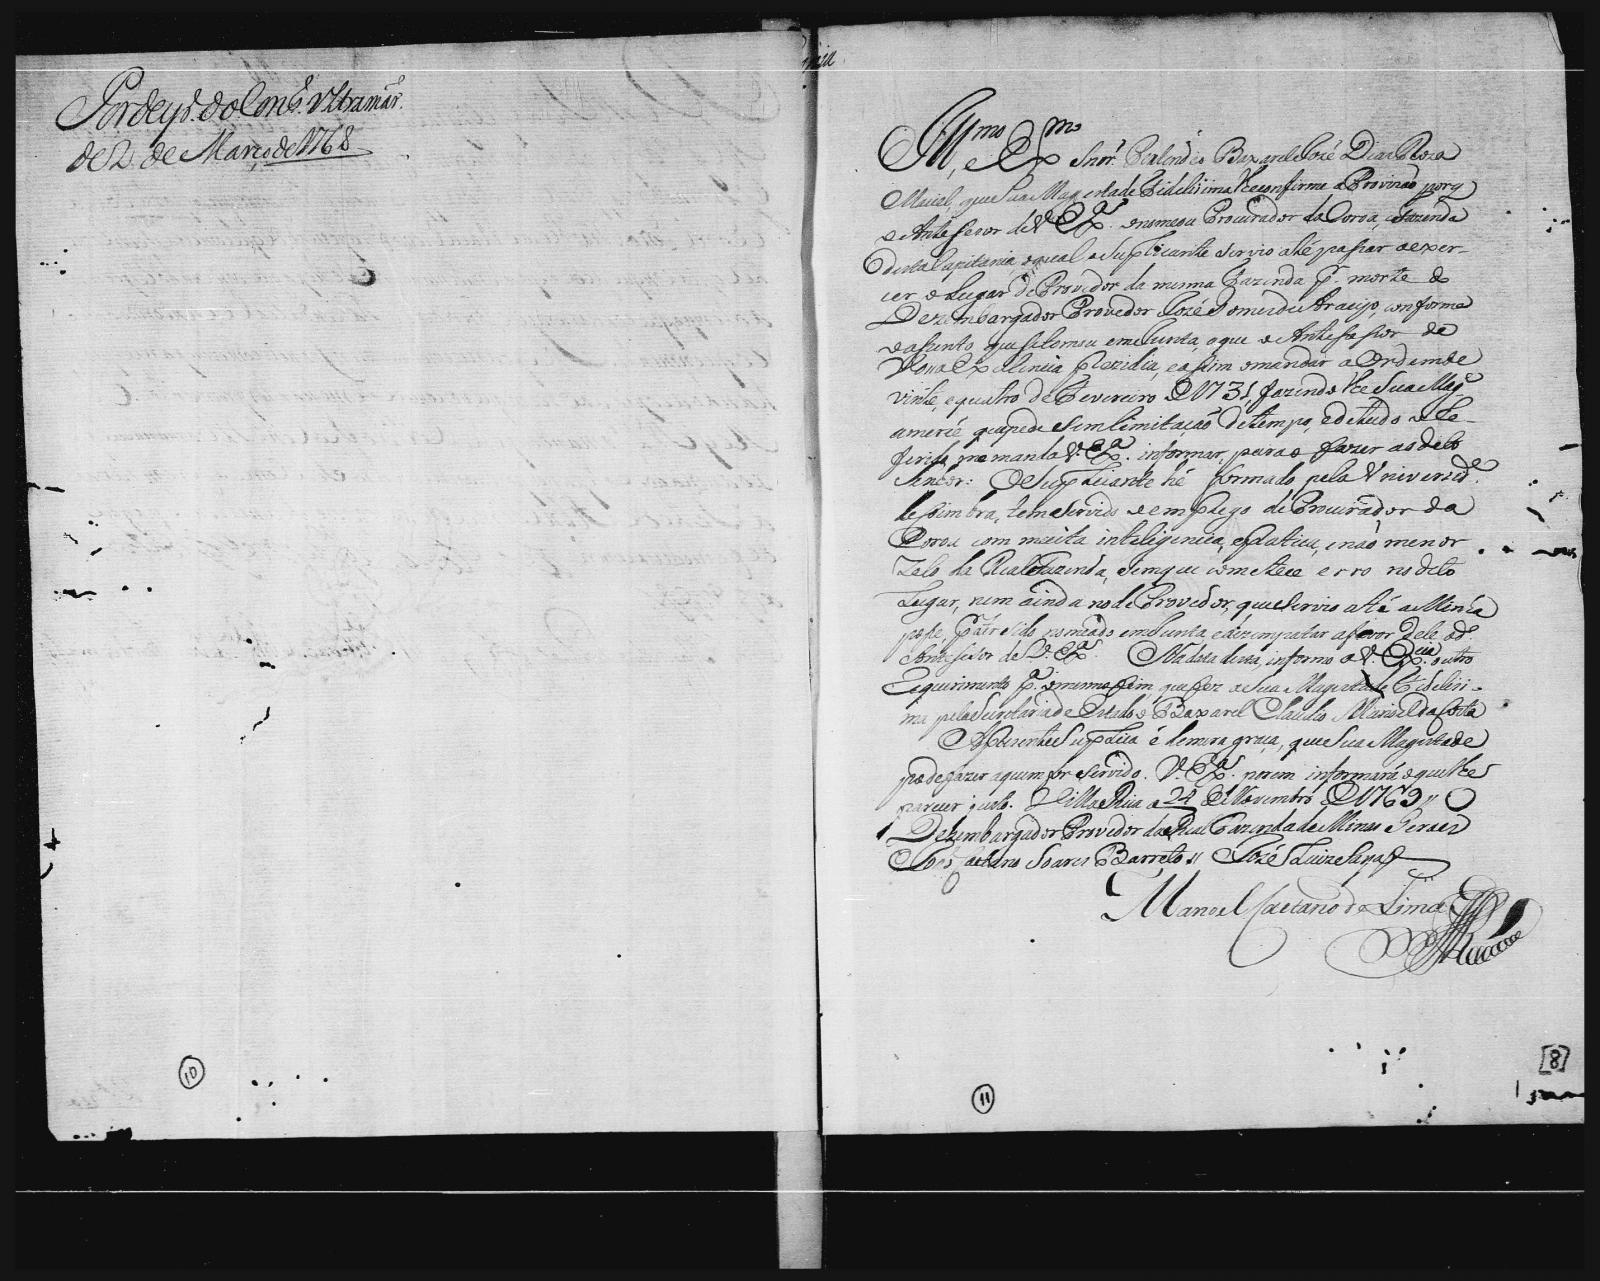 Por desp.º do Cons.º Ultramar.º
de 2 de Março de 1768
10
Ill.mo e Ex.mo Snõr. Pertende o Baxarel Jozé Dias Roza
Maciel, que Sua Magestade Fidelissima lhe confirme a Provizaõ porq
o Antesesor de V. Ex.ª o nomeou Procurador da Coroa, e fazenda
desta Capitania, o qual o Suplicante servio athé pasar a exer-
cer o Lugar de Provedor da mesma Fazenda p.r morte do
Dezembargador Provedor Jozé Gomes de Araujo, conforme
o asento que se tomou em Junta, a que o Antesesor de
Vossa Excelencia Prezidia, e asim o mandar a Ordem de
vinte, e quatro de Fevereiro de 1731, fazendo lhe Sua Mag.e
a mercé, que pede sem limitaçaõ de tempo, e de tudo o re-
ferido, me manda V. Ex.ª informar, para o fazer ao dito
Senhor: O Suplicante hé formado pela Universid.e
de Coimbra, tem servido o emprego de Procurador da
Coroa com muita inteligencia, e pratica, e naõ menor
zelo da Real Fazenda, sem que cometece erro no dito
Lugar, nem ainda no de Provedor, que servio athé a Minha
pose, p.r ter sido nomeado em Junta, e dezempatar a favor dele o d.º
Antesesor de V. Ex.ª Na data desta, informo a V. Ex.cia outro
Requerimento p.ª o mesmo fim, que fez a Sua Magestade Fidelisi-
ma pela Secretaria de Estado o Baxarel Claudio Manoel da Costa
A prezente Suplica é de mera graça, que Sua Magestade
pode fazer a quem for servido. V. Ex.ª porem informará o que lhe
parecer justo. Villa Rica a 24 de Novembro de 1769 //
Dezembargador Provedor da Real Fazenda de Minas Geraes
Joaõ Caetano Soares Barreto // Jozé Luiz Sayaõ
Manoel Caetano de Lima
11
[8]